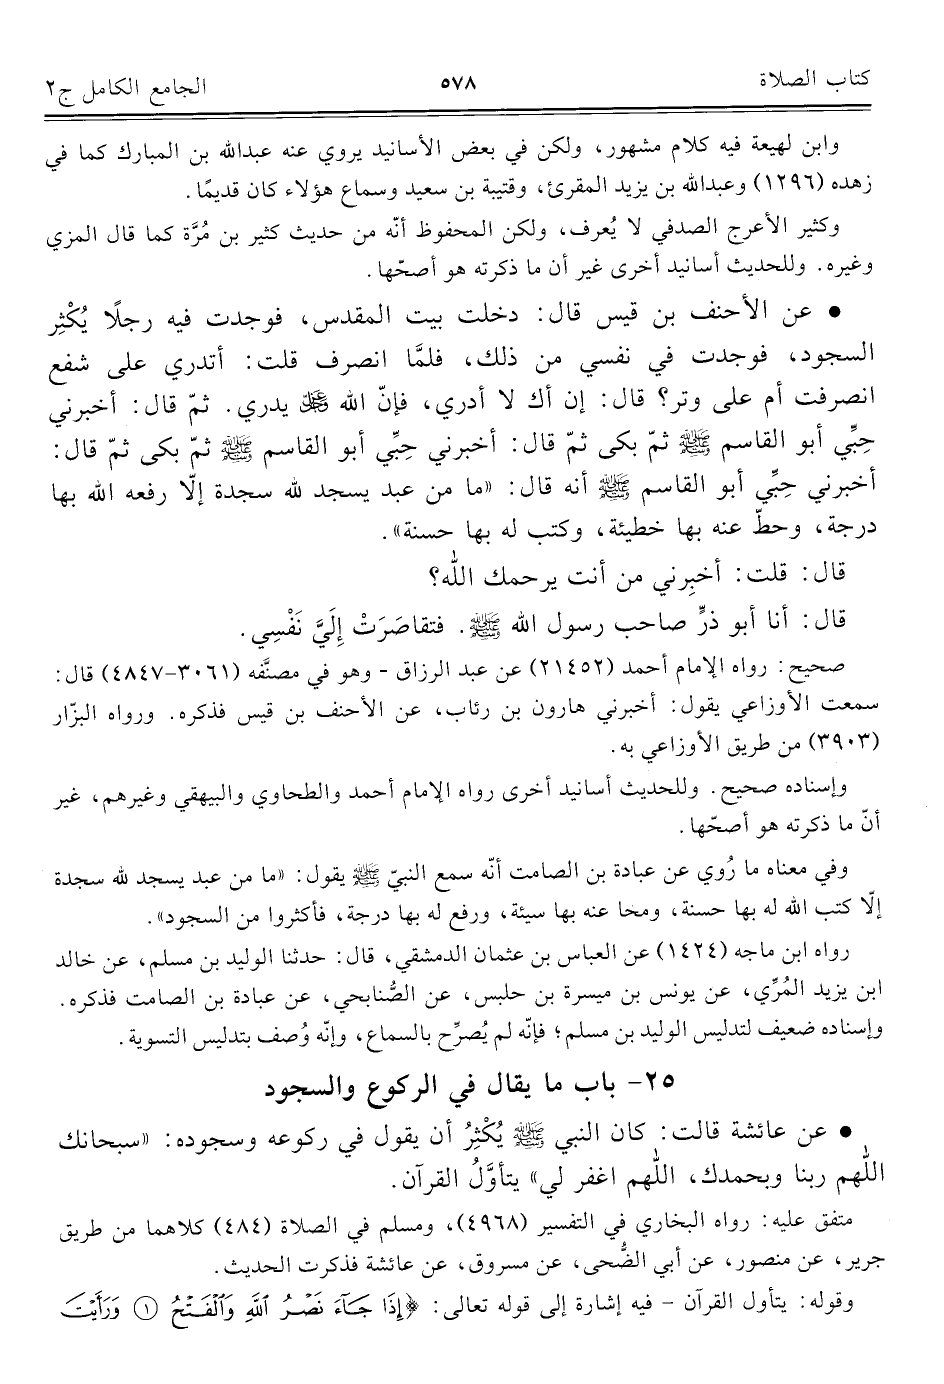 كتاب الصلاة ٥٧٨ الجامع الكامل ج٢
وابن لهيعة فيه كلام مشهور، ولكن في بعض الأسانيد يروي عنه عبدالله بن المبارك كما في
زهده (١٢٩٦) وعبدالله بن يزيد المقرئ، وقتيبة بن سعيد وسماع هؤلاء كان قديمًا.
وكثير الأعرج الصدفي لا يُعرف، ولكن المحفوظ أنّه من حديث كثير بن مُرَّة كما قال المزي
وغيره. وللحديث أسانيد أخرى غير أن ما ذكرته هو أصحّها.
● عن الأحنف بن قيس قال: دخلت بيت المقدس، فوجدت فيه رجلًا يُكْثِر
السجود، فوجدت في نفسي من ذلك، فلمَّا انصرف قلت: أتدري على شفع
انصرفت أم على وتر؟ قال: إن أك لا أدري، فإنّ الله ﷻ يدري. ثمّ قال: أخبرني
حِبِّي أبو القاسم ﷺ ثمّ بكى ثمّ قال: أخبرني حِبِّي أبو القاسم ﷺ ثمّ بكى ثمّ قال:
أخبرني حبِّي أبو القاسم ﷺ أنه قال: «ما من عبد يسجد لله سجدة إلّا رفعه الله بها
درجة، وحطّ عنه بها خطيئة، وكتب له بها حسنة».
قال: قلت: أخبِرني من أنت يرحمك الله؟
قال: أنا أبو ذرٍّ صاحب رسول الله ﷺ. فتقاصَرَتْ إِلَيَّ نَفْسِي.
صحيح: رواه الإمام أحمد (٢١٤٥٢) عن عبد الرزاق - وهو في مصنَّفه (٣٠٦١-٤٨٤٧) قال:
سمعت الأوزاعي يقول: أخبرني هارون بن رئاب، عن الأحنف بن قيس فذكره. ورواه البزّار
(٣٩٠٣) من طريق الأوزاعي به.
وإسناده صحيح. وللحديث أسانيد أخرى رواه الإمام أحمد والطحاوي والبيهقي وغيرهم، غير
أنّ ما ذكرته هو أصحّها.
وفي معناه ما رُوي عن عبادة بن الصامت أنّه سمع النبيّ ﷺ يقول: «ما من عبد يسجد لله سجدة
إلّا كتب الله له بها حسنة، ومحا عنه بها سيئة، ورفع له بها درجة، فأكثروا من السجود».
رواه ابن ماجه (١٤٢٤) عن العباس بن عثمان الدمشقي، قال: حدثنا الوليد بن مسلم، عن خالد
ابن يزيد المُرِّي، عن يونس بن ميسرة بن حلبس، عن الصُّنابحي، عن عبادة بن الصامت فذكره.
وإسناده ضعيف لتدليس الوليد بن مسلم؛ فإنّه لم يُصرِّح بالسماع، وإنّه وُصف بتدليس التسوية.
٢٥- باب ما يقال في الركوع والسجود
● عن عائشة قالت: كان النبي ﷺ يُكْثِرُ أن يقول في ركوعه وسجوده: «سبحانك
اللّٰهم ربنا وبحمدك، اللّٰهم اغفر لي» يتأوَّلُ القرآن.
متفق عليه: رواه البخاري في التفسير (٤٩٦٨)، ومسلم في الصلاة (٤٨٤) كلاهما من طريق
جرير، عن منصور، عن أبي الضُّحى، عن مسروق، عن عائشة فذكرت الحديث.
وقوله: يتأول القرآن - فيه إشارة إلى قوله تعالى: ﴿إِذَا جَآءَ نَصْرُ ٱللَّهِ وَٱلْفَتْحُ ۝١ وَرَأَيْتَ